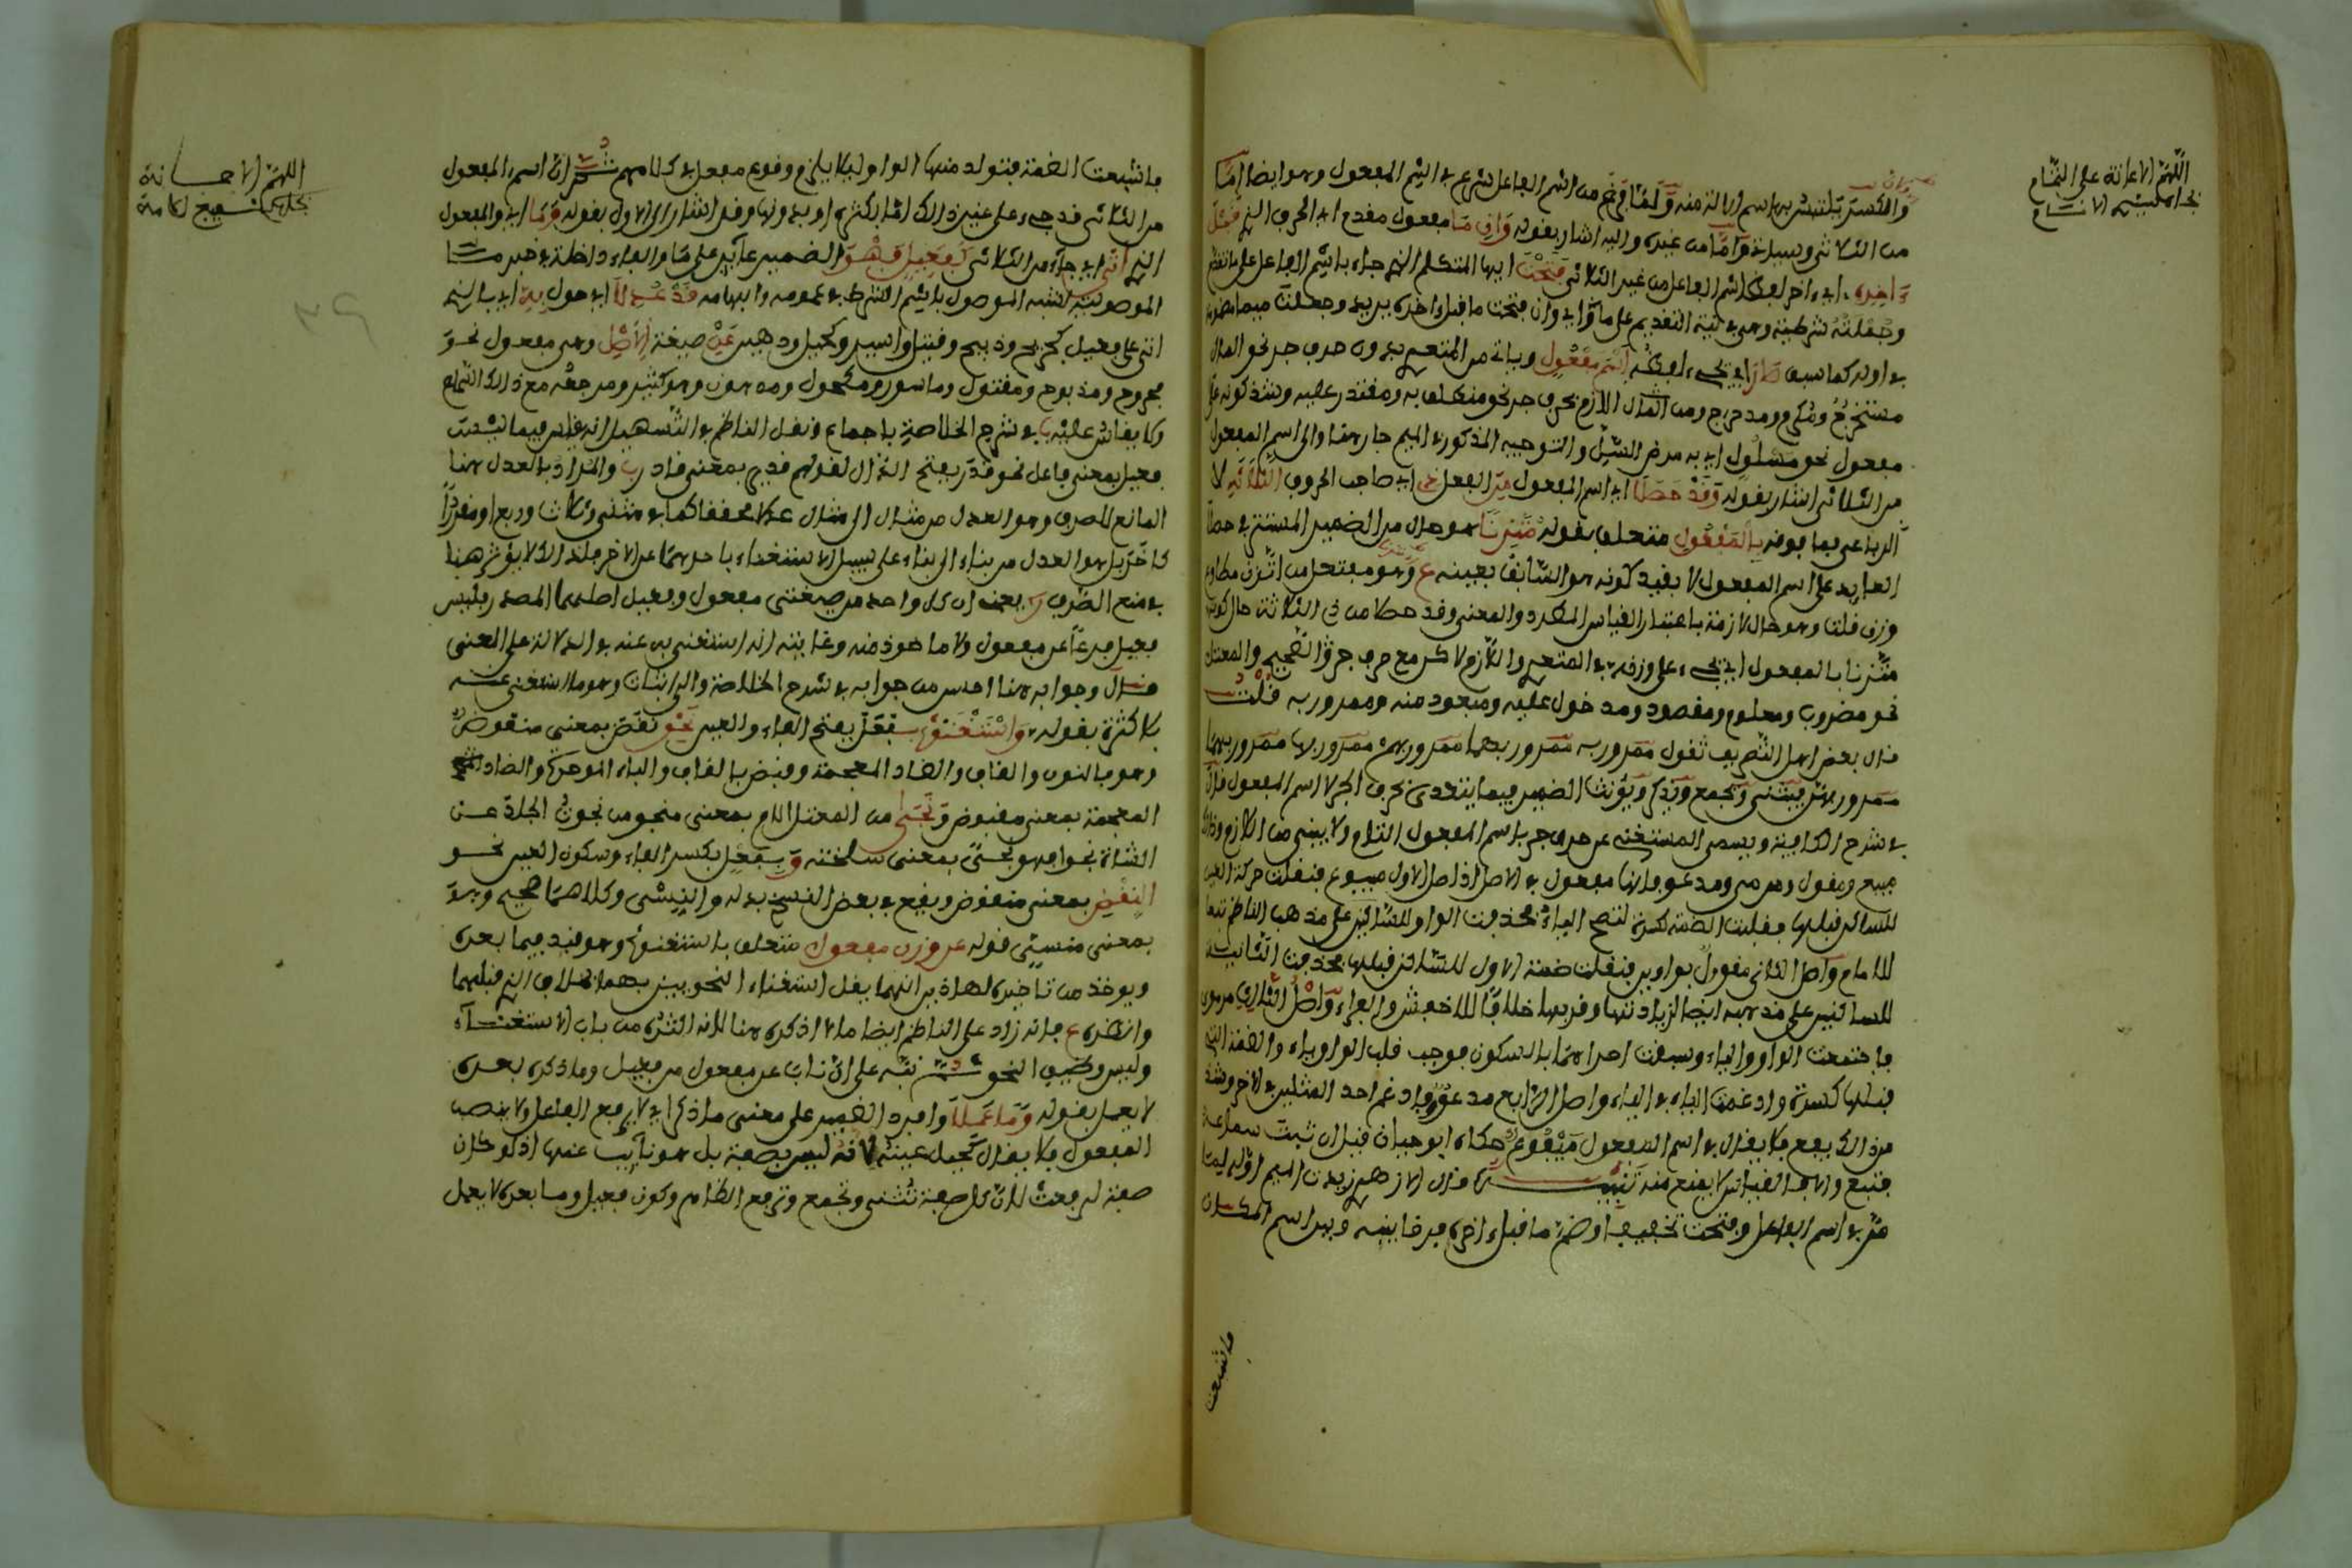 اللهم الاعانة على التمام
بجاه مليم الانسام
وانكسر يلتبس باسم الالة منه ولما فرغ من اسم الفاعل شرع في اسم المفعول وهو ايضا إمّا
من الثلاثي وسيلة وإمّا من غيره واليه اشار بقوله وإن ما مفعول مقدم اي الحرف الذي قبل
ءاخره اي ءاخر لفظ اسم الفاعل من غير الثلاثي فتحت ايها المتكلم الذي جاء باسم الفاعل على ما تقدم
وجملته شرطية وهي في نية التقديم على ما اي وان فتحت ما قبل ءاخره يريد وجعلت ميما مضمومة
في اوله كما سبق صار اي لفظه اسم مفعول وياتي من المتعدي بدون حرف جر نحو المال
مستخرج ومكرم ومدحرج ومن اللازم بحرف جر نحو منطلق به ومقتدر عليه وشذ كونه على
مفعول نحو مسلول اي به مرض السل والتوجيه المذكور في الميم جار هنا والى اسم المفعول
من الثلاثي اشار بقوله وقد حصل اي اسم المفعول من الفعل ذي اي صاحب الحروف الثلاثة لا
الرباعي فما فوقه بالمفعول متعلق بقوله متزنا هو حال من الضمير المستتر في حصل
العايد على اسم المفعول لا بقيد كونه هو السابق بعينه وهو مفتعل من اتزن مطاوع
وزن قلت وهو حال لازمة باعتبار القياس المطرد والمعنى وقد حصل من ذي الثلاثة حال كونه
متزنا بالمفعول اي يجيء على وزنه في المتعدي واللازم لاكن مع حرف جر والصحيح والمعتل
نحو مضروب ومعلوم ومقصود ومدخول عليه ومسجود منه وممرور به قلت
قال بعض اهل التصريف تقول ممرور به ممرور بهما ممرور بهم ممرور بها ممرور بهما
ممرور بهن فيثنى ويجمع ويذكر ويؤنث الضمير فيما يتعدى بحرف الجر لا اسم المفعول قال
في شرح الكافية ويسمى المستغني عن حرف جر باسم المفعول التام ولا يبنى من اللازم وذلك
مبيع ومقول ومرمي ومدعو فانها مفعول في الاصل اذ اصل الاول مبيوع فنقلت حركة العين
للساكن قبلها فقلبت الضمة كسرة لتصح الياء فحذفت الواو للساكنين على مذهب الناظم تبعا
للامام واصل الثاني مقوول بواوين فنقلت ضمة الاولى للساكن قبلها فحذفت الثانية
للساكنين على مذهبه ايضا لزيادتها وقربها خلافا للاخفش والفراء واصل الثالث مرموي
فاجتمعت الواو والياء وسبقت احداهما بالسكون فوجب قلب الواو ياء والضمة التي
قبلها كسرة وادغمت الياء في الياء واصل الرابع مدعوو وادغم احد المثلين في الاخر وشذ
من ذلك يفع فلا يقال في اسم المفعول ميفوع حكاه ابو حيان فبان ثبت سماعه
فتبع والا فالقياس لا يمنع منه تنبيه قال الازهري زيدت الميم اوله لما
مر في اسم الفاعل وفتحت تخفيفا وضم ما قبل ءاخره فرقا بينه وبين اسم المكان
فاشبعت
اللهم الاحسانة
بجاه شفيع الامة
فاشبعت الضمة فتولد منها الواو ليلا يلزم وقوع مفعل في كلامهم ثم ان اسم المفعول
من الثلاثي قد جيء على غير ذلك اما بكثرة او بدونها وقد اشار الى الاول بقوله وما اي والمفعول
الذي اتى اي جاء من الثلاثي كفعيل فهو الضمير عايد على ما والفاء داخلة في خبر ما
الموصولة لشبه الموصول باسم الشرط في عمومه وابهامه قد عدل اي حول به اي بالذي
اتى على فعيل كجريح وذبيح وقتيل واسير وكحيل ودهين عن صيغة الاصل وهي مفعول نحو
مجروح ومذبوح ومقتول وماسور ومكحول ومدهون وهو كثير ومرجعه مع ذلك السماع
ولا يقاس عليه في شرح الخلاصة باجماع ونقل الناظم في التسهيل انه يقاس فيما ليس
فعيل بمعنى فاعل نحو قدر بفتح الذال لقولهم قدير بمعنى قادر والمراد بالعدل هنا
المانع للصرف وهو العدل من مثال الى مثال عدلا محققا كما في مثنى وثلاث ورباع او مقدرا
كاخر بل هو العدل من بناء الى بناء على سبيل الاستغناء باحدهما عن الاخر فلذلك لا يؤثر هنا
في منع الصرف بمعنى ان كل واحد من صيغتي مفعول وفعيل اصلهما المصدر فليس
فعيل فرعا عن مفعول ولا ماخوذ منه وغايته انه استغني به عنه في الدلالة على المعنى
قال وجوابه هنا احسن من جوابه في شرح الخلاصة والى اثبات وهو ما استغني عنه
بلا كثرة بقوله واستغنوا بفعل بفتح الفاء والعين نحو نقض بمعنى منقوض
وهو بالنون والقاف والضاد المعجمة وقبض بالقاف والباء الموحدة والضاد
المعجمة بمعنى مقبوض ونجى من المعتل اللام بمعنى منجو من نجوت الجلد عن
الشاة نجوا فهو نجى بمعنى سلخته وبفعل بكسر الفاء وسكون العين نحو
النقض بمعنى منقوض ويقع في بعض النسخ بدله والنسي وكلاهما صحيح وهو
بمعنى منسي قوله عن وزن مفعول متعلق باستغنوا وهو قيد فيما بعده
ويوخذ من تاخيره لهاذين انهما يقل استغناء النحويين بهما بخلاف الذي قبلهما
وانظره فانه زاد على الناظم ايضا ما لا اذكره هنا لانه اكثره من باب الاستغناء
وليس وظيف النحو ثم نبه على ان ناب عن مفعول من فعيل وما ذكره بعده
لا يعمل بقوله وما عملا وافرد الضمير على معنى ما ذكر اي لا يرفع الفاعل ولا ينصب
المفعول فلا يقال كحيل عينه لانه ليس بصفة بل هو نايب عنها اذ لو كان
صفة لرفعت لان كل صفة تثنى وتجمع وترفع الظاهر وكون فعيل وما بعده لا يعمل